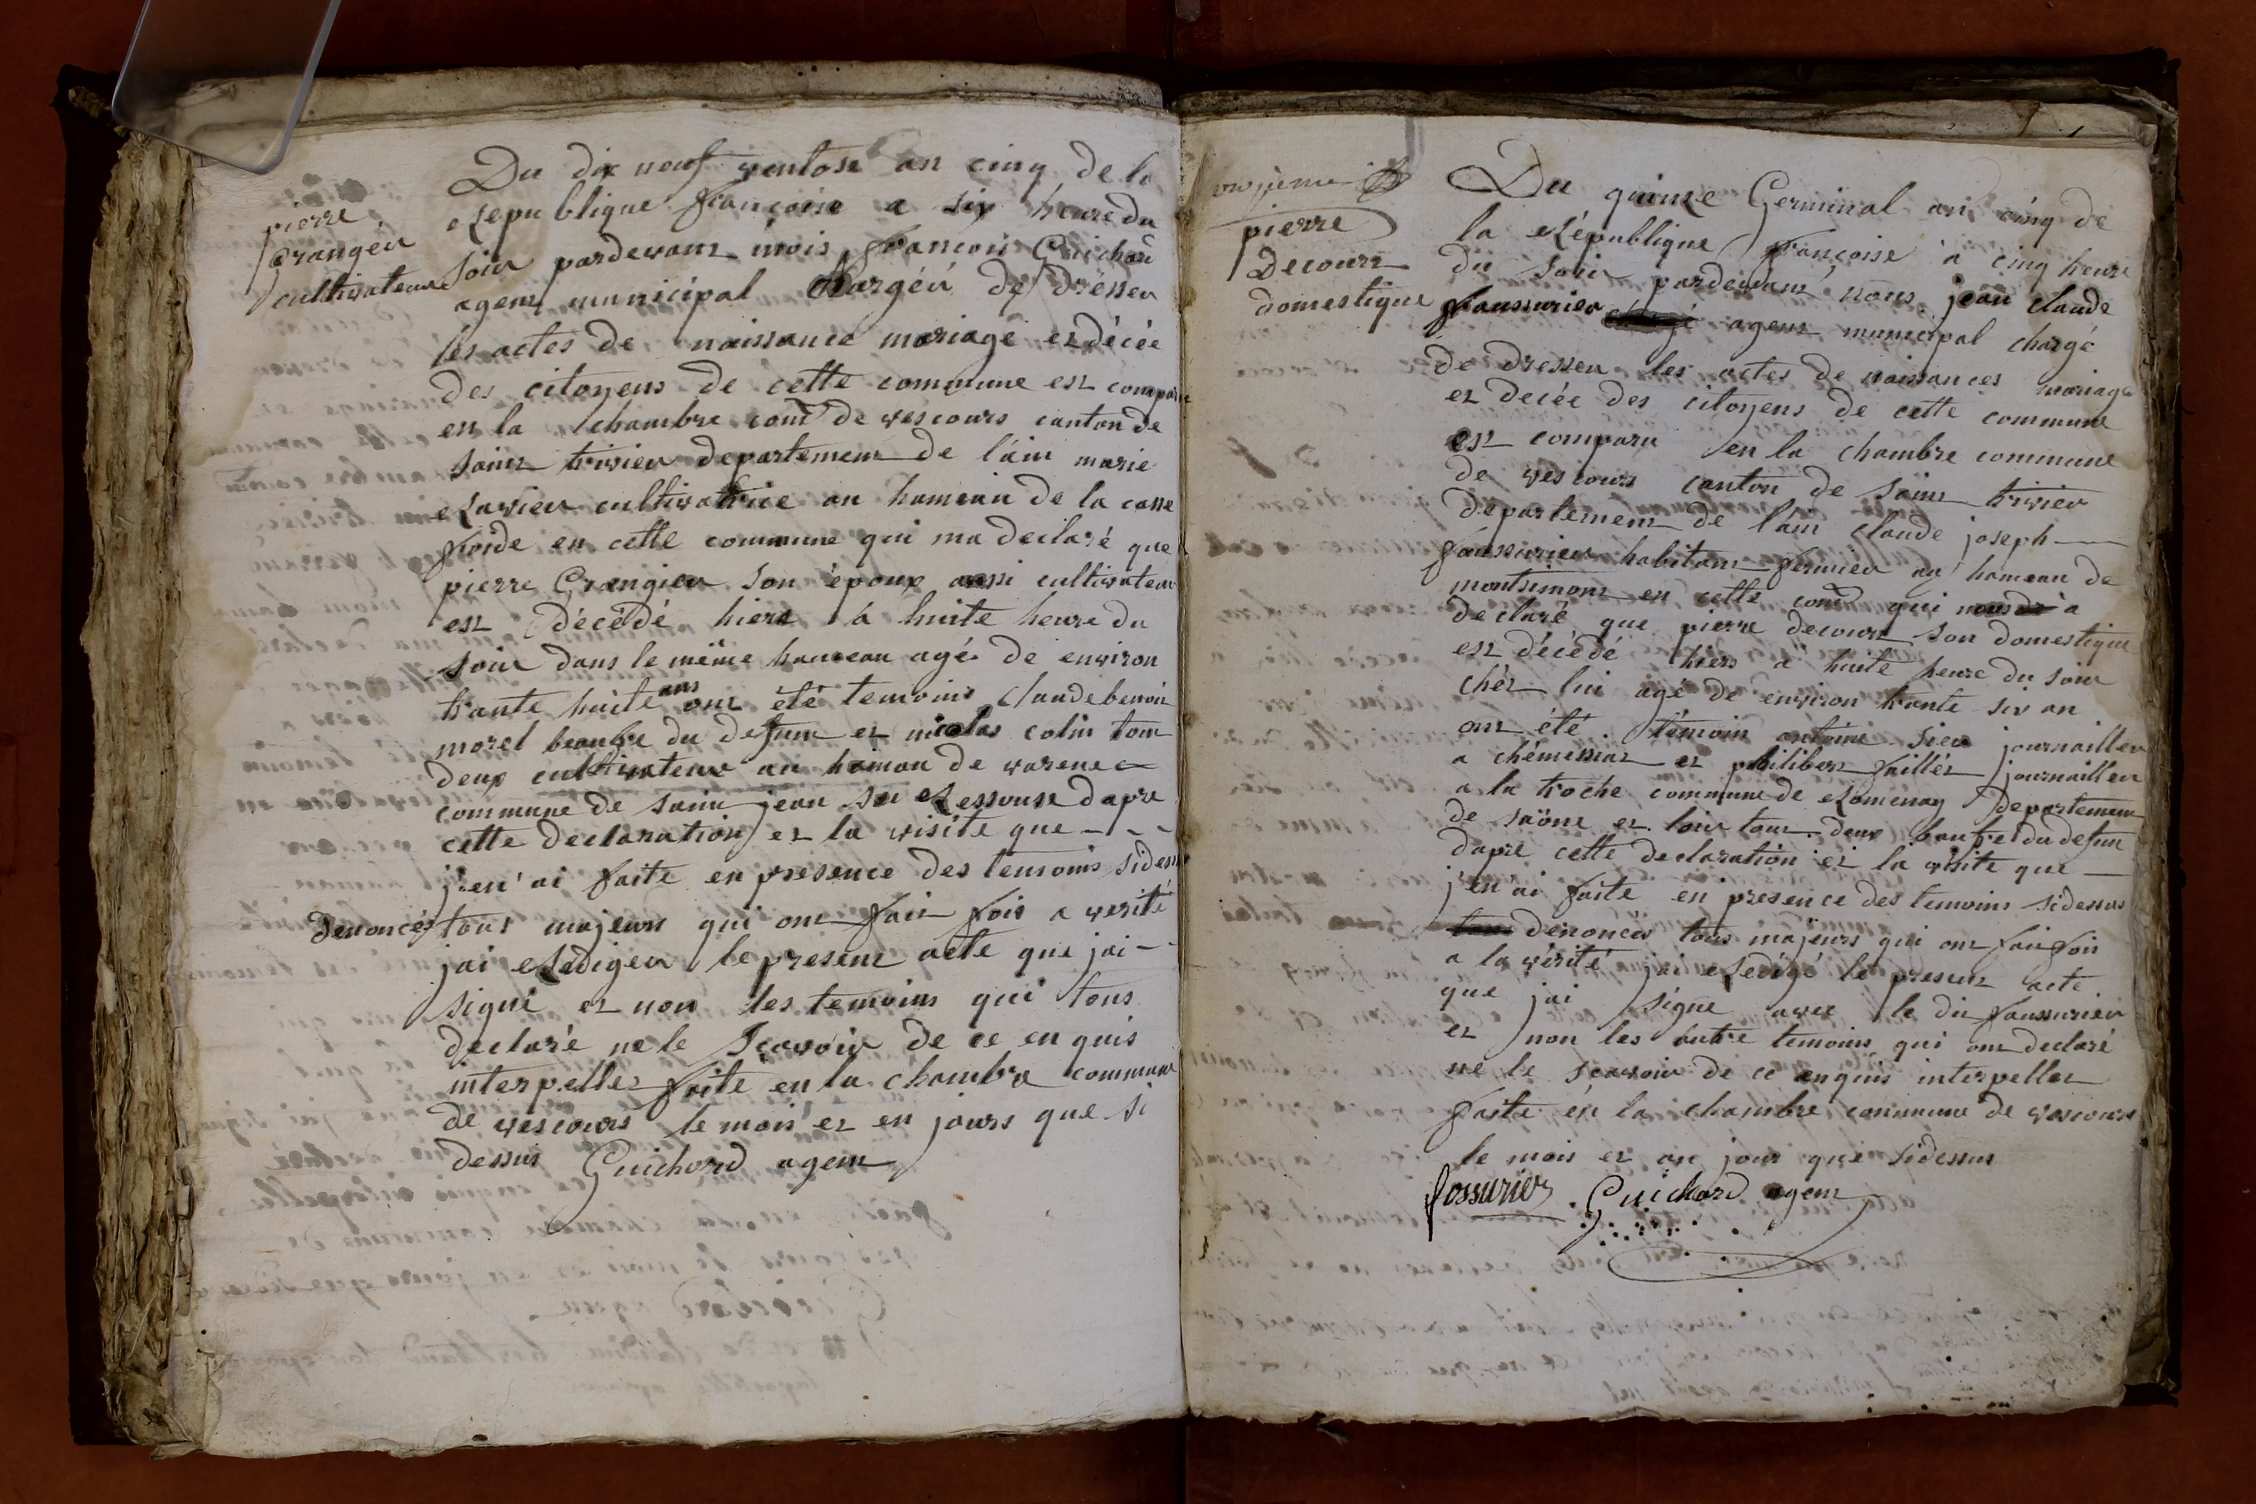 pierre
Grangér
cultivateur
Du dix neuf ventose an cinq de la
Republique françoise a six heure du
soir pardevant mois francois Guichard
agent municipal Chargér de drésser
les actes de naissance mariage et décée
des citoyens de cette commune est comparu
en la chambre com de vescours canton de
saint trivier departement de l'ain marie
Ravier cultivatrice au hameau de la casse
froide en cette commune qui ma declaré que
pierre Grangier son époux aussi cultivateur
est décédé hiere à huite heure du
soir dans le même hameau agé de environ
trante huite ans ont été temoins claude benoit
morel beaufre du defunt et nicolas colin tout
deux cultivateur au hamau de varene
commune de saint jean sur Ressouse dapre
cette declaration et la visite que - - -
j'en'ai faite en presence des temoins sidess
denoncés tous majeurs qui ont fait fois a verité
jai Rediger le present acte que jai -
signé et non les temoins qui tous
declaré ne le sçavoir de ce en quis
interpeller faite en la chambre commune
de vescours le mois et en jours que si
dessus Guichard agent
onzieme
pierre
Decourt
domestique
Du quinze Germinal an cinq de
la République françoise à cinq heure
du soir pardevant nous jean claude
faussurier agent municipal chargé
de dresser les actes de naissances mariage
et decée des citoyens de cette commune
est comparu en la chambre commune
de vescours canton de saint trivier
departement de l'ain claude joseph
faussurier habitant fermier au hameau de
montsimont en cette com qui a
declaré que pierre decourt son domestique
est décédé hiers a huite heure du soir
chér lui agé de environ trante six an
ont été témoin antoine journaillier
a et philibert journaillier
a la troche commune de Romenay departement
de saöne et loire tout deux baufre du defun
dapre cette declaration et la visite que
j'en'ai faite en presence des temoins sidessus
denoncés tous majeurs qui ont fait fois
a la vérité jai Redigé le present acte
que jai signe avec le dit faussurier
et non les autre temoins qui ont declaré
ne le sçavoir de ce enquis interpeller
faite en la chambre commune de vescours
le mois et an jour que sidessus
fossurier Guichard agent